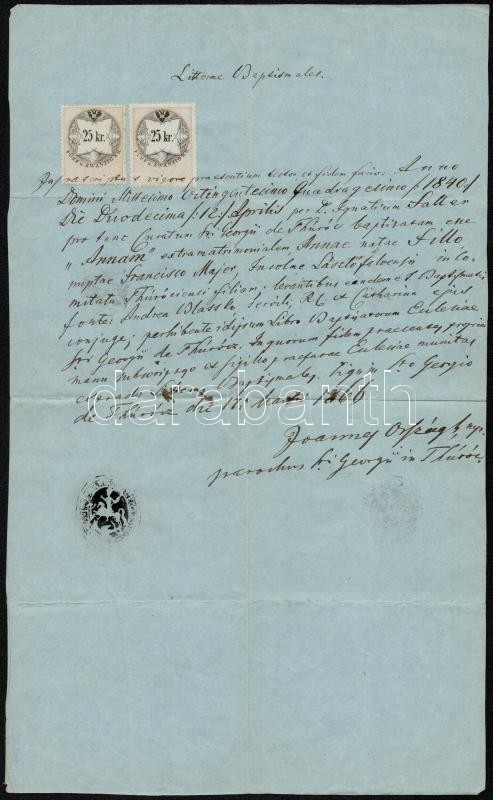 Litterae Baptismales.
25 kr.
25 kr.
Infrascriptus vigore praesentium testor et fidem facio: Anno
Domini Millesimo Octingentesimo Quadragesimo /:1840:/
Die Duodecima /:12:/ Aprilis per D. Ignatium Faller
pro tunc Curatum Sti Georgii de Thurócz baptisatam esse
"Annam" extramatrimonialem Annae natae Fillo
Francisco Major, Incolae in Co-
mitatu Thurócziensi filiam, levantibus eandem e S. Baptismatis
fonte: Andrea Blassko R. C. et Catharina ejus
conjuge, perhibente idipsum Libro Baptisatorum Ecclesiae
Sti Georgii de Thurócz. In quorum fidem praesentes propria
manu subscripsi et sigillo praefatae Ecclesiae munitas
Baptismales. Signum Sto Georgio
de Thurócz die 1866
darabanth
Joannes Országh, mp.
parochus Sti Georgii in Thurócz